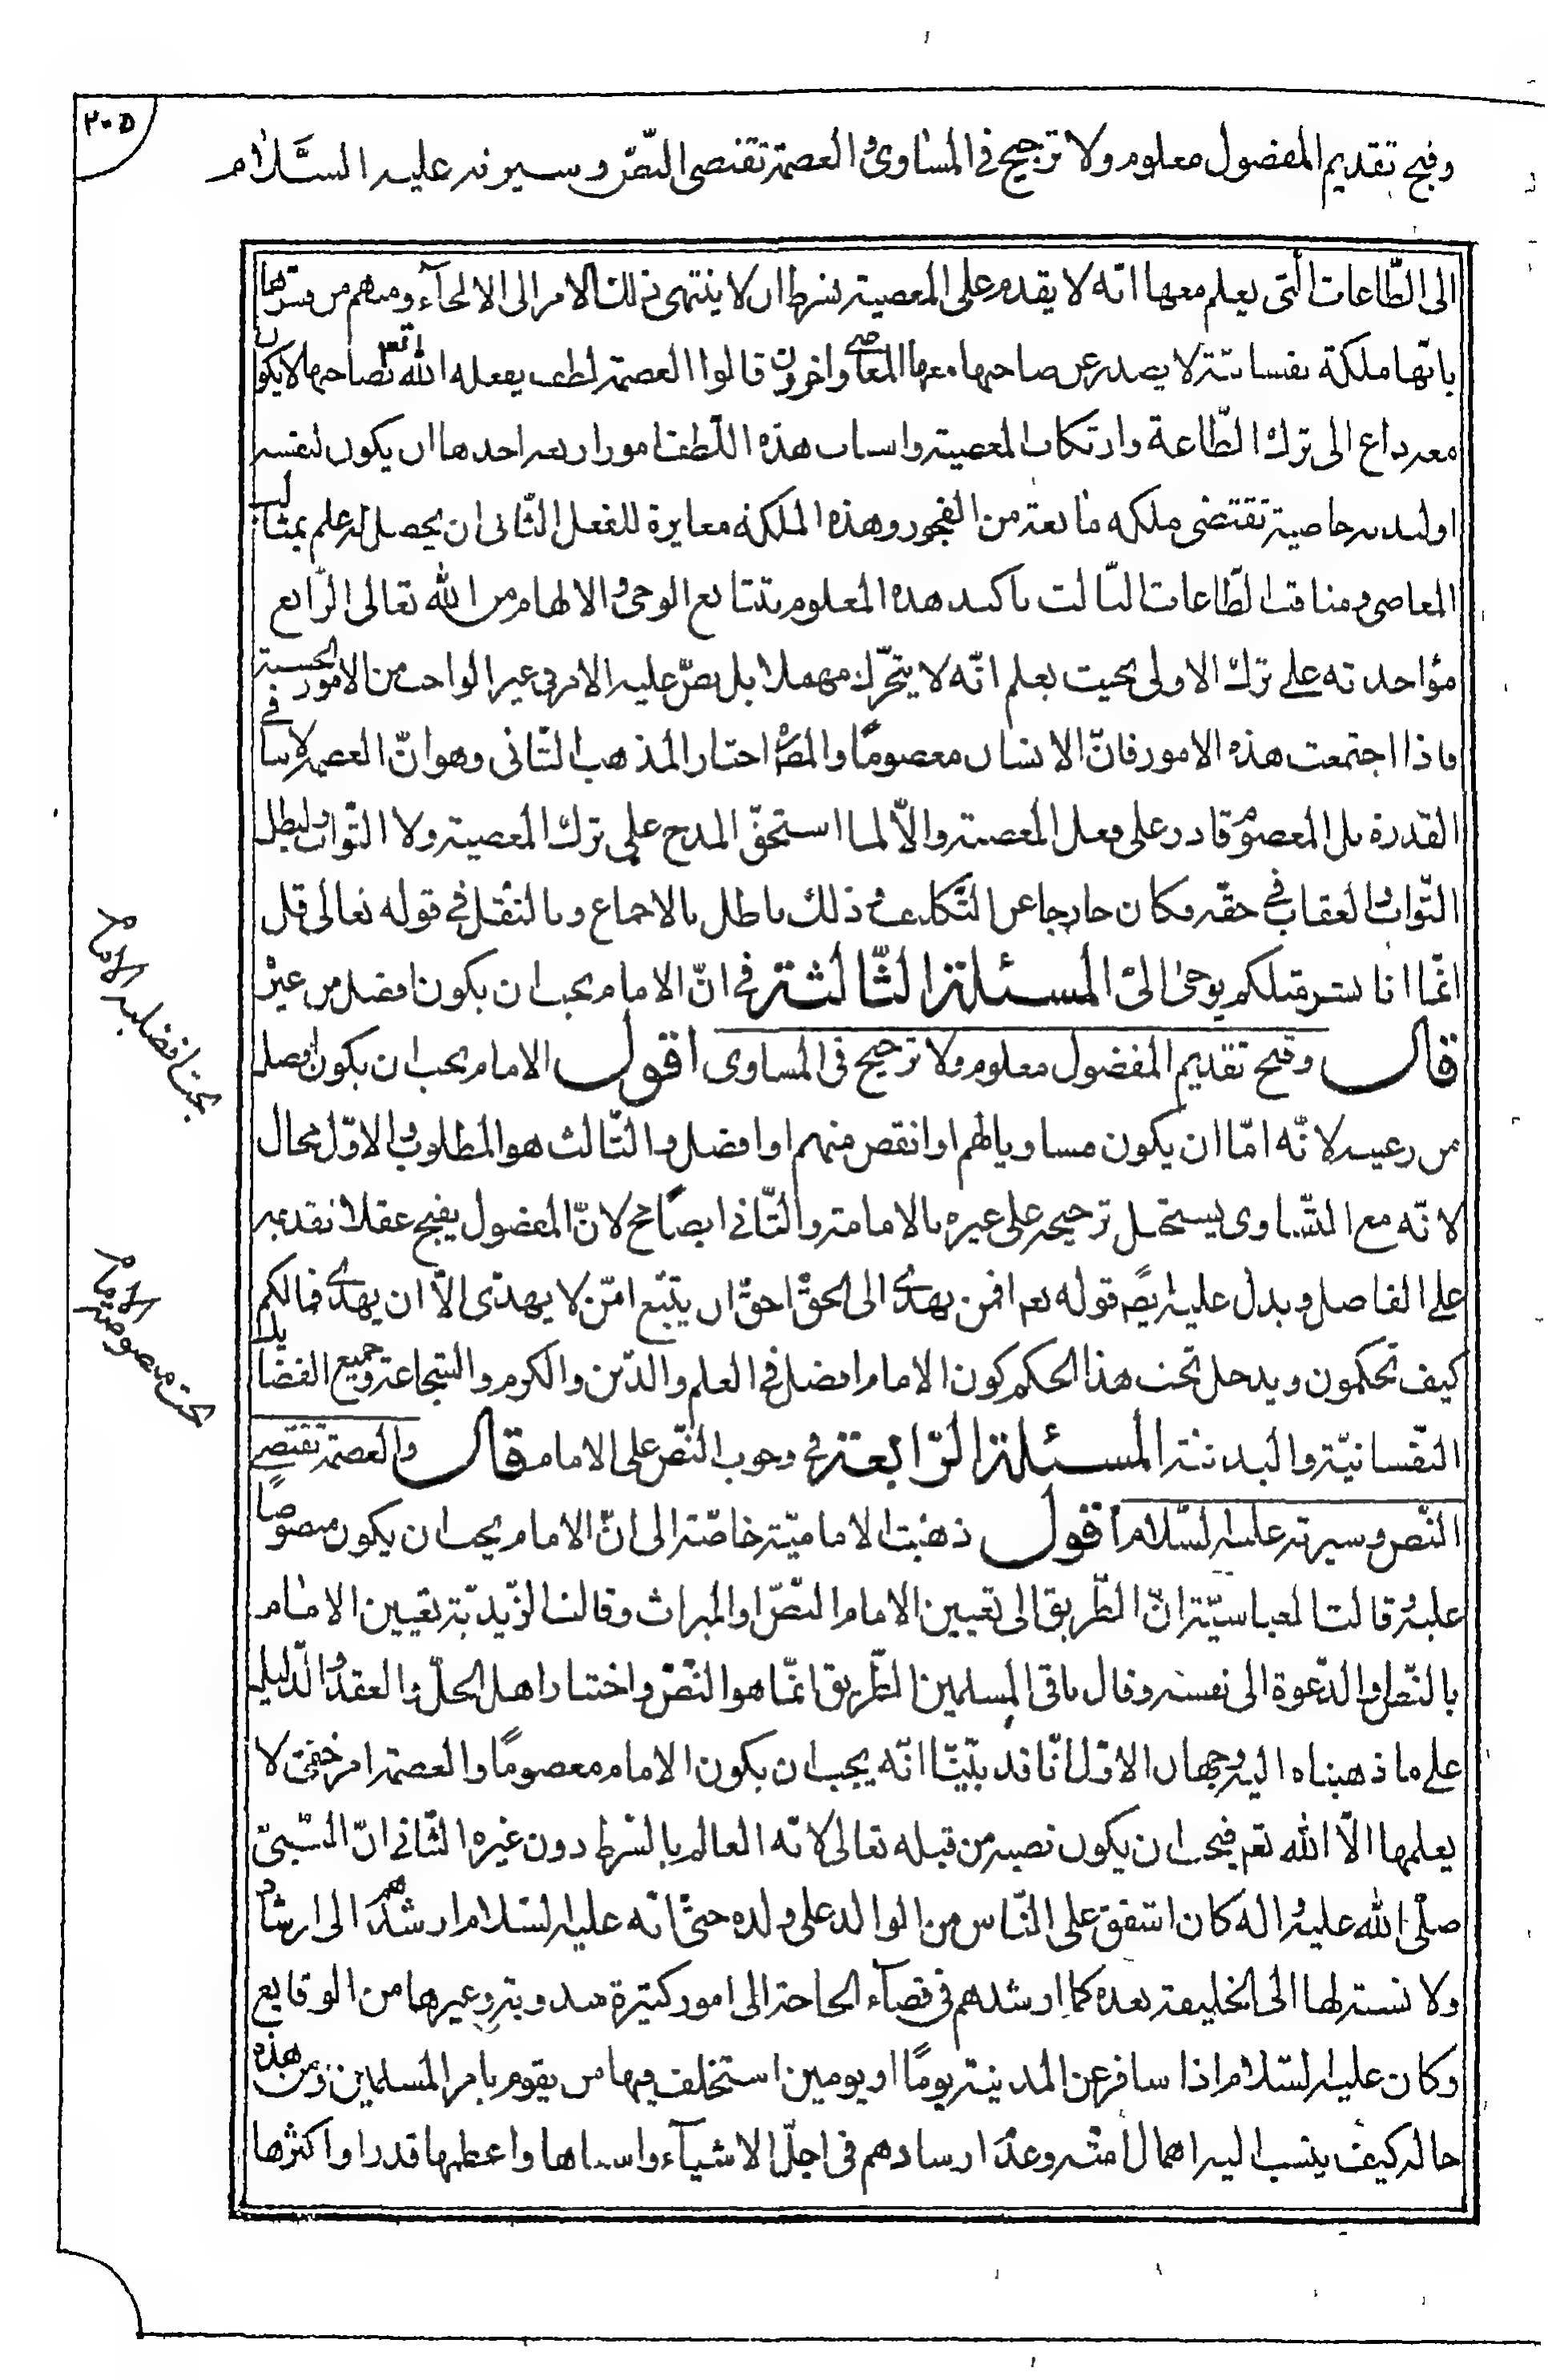 ٢٠٥
وقبح تقديم المفضول معلوم ولا ترجيح في المساوى والعصمة تقتضى النّصّ وسيرته عليه السَّلام
الى الطّاعات الّتى يعلم معها انّه لا يقدم على المعصية بشرط ان لا ينتهى ذلك الامر الى الالجآء ومنهم من فسّرها
بانّها ملكة نفسانيّة لا يصدر عن صاحبها معها المعاصى واخرون قالوا العصمة لطف يفعله الله تع بصاحبها لا يكون
معه داع الى ترك الطّاعة وارتكاب المعصية واسباب هذه اللّطف امور اربعة احدها ان يكون لنفسه
او لبدنه خاصية تقتضى ملكة مانعة من الفجور وهذه الملكة مغايرة للفعل الثّانى ان يحصل له علم بمثالب
المعاصى ومناقب الطّاعات الثّالث تاكيد هذه العلوم بتتابع الوحى والالهام من الله تعالى الرّابع
مؤاخذته على ترك الاولى بحيث يعلم انّه لا يتحرّك مهملا بل يضيّق عليه الامر في غير الواجب من الامور الحسنة
فاذا اجتمعت هذه الامور فانّ الانسان معصومًا والمصّ اختار المذهب الثّانى وهو انّ العصمة لا تنافى
القدرة بل المعصوم قادر على فعل المعصية والّا لما استحقّ المدح على ترك المعصية ولا الثّواب ولبطل
الثّواب والعقاب في حقّه فكان خارجا عن التّكليف وذلك باطل بالاجماع وبالنّقل في قوله تعالى قل
انّما انا بشر مثلكم يوحى الىّ المسئلة الثّالثة في انّ الامام يجب ان يكون افضل من غيره
قال وقبح تقديم المفضول معلوم ولا ترجيح في المساوى اقول الامام يجب ان يكون افضل
من رعيته لانّه امّا ان يكون مساويا لهم او انقص منهم او افضل والثّالث هو المطلوب والاوّل محال
لانّه مع التّساوى يستحيل ترجيحه على غيره بالامامة والثّانى ايضًا مح لانّ المفضول يقبح عقلا تقديمه
على الفاضل ويدل عليه ايضً قوله تع افمن يهدى الى الحقّ احقّ ان يتّبع امّن لا يهدّى الّا ان يهدى فمالكم
كيف تحكمون ويدخل تحت هذا الحكم كون الامام افضل في العلم والدّين والكرم والشّجاعة وجميع الفضايل
النّفسانيّة والبدنيّة المسئلة الرّابعة في وجوب النّصّ على الامام قال والعصمة تقتضى
النّصّ وسيرته عليه السّلام اقول ذهبت الاماميّة خاصّة الى انّ الامام يجب ان يكون منصوصًا
عليه وقالت العباسيّة انّ الطّريق الى تعيين الامام النّصّ او الميراث وقالت الزّيديّة تعيين الامام
بالنّصّ او الدّعوة الى نفسه وقال باقى المسلمين الطّريق انّما هو النّصّ واختيار اهل الحلّ والعقد والدّليل
على ما ذهبناه اليه وجهان الاوّل انّا قد بيّنّا انّه يجب ان يكون الامام معصومًا والعصمة امر خفىّ لا
يعلمها الّا الله تع فيجب ان يكون نصبه من قبله تعالى لانّه العالم بالشّرط دون غيره الثّانى انّ النّبىّ
صلّى الله عليه واله كان اشفق على النّاس من الوالد على ولده حتّى انّه عليه السّلام ارشدهم الى ارشاد
ولا نسبة لها الى الخليفة بعده كما ارشدهم في قضآء الحاجة الى امور كثيرة مندوبة وغيرها من الوقايع
وكان عليه السّلام اذا سافر عن المدينة يومًا او يومين استخلف فيها من يقوم بامر المسلمين ومن هذه
حاله كيف ينسب اليه اهمال امّته وعدم ارشادهم في اجلّ الاشيآء واسناها واعظمها قدرا واكثرها
بحث افضلية الامام
بحث منصوصية الامام